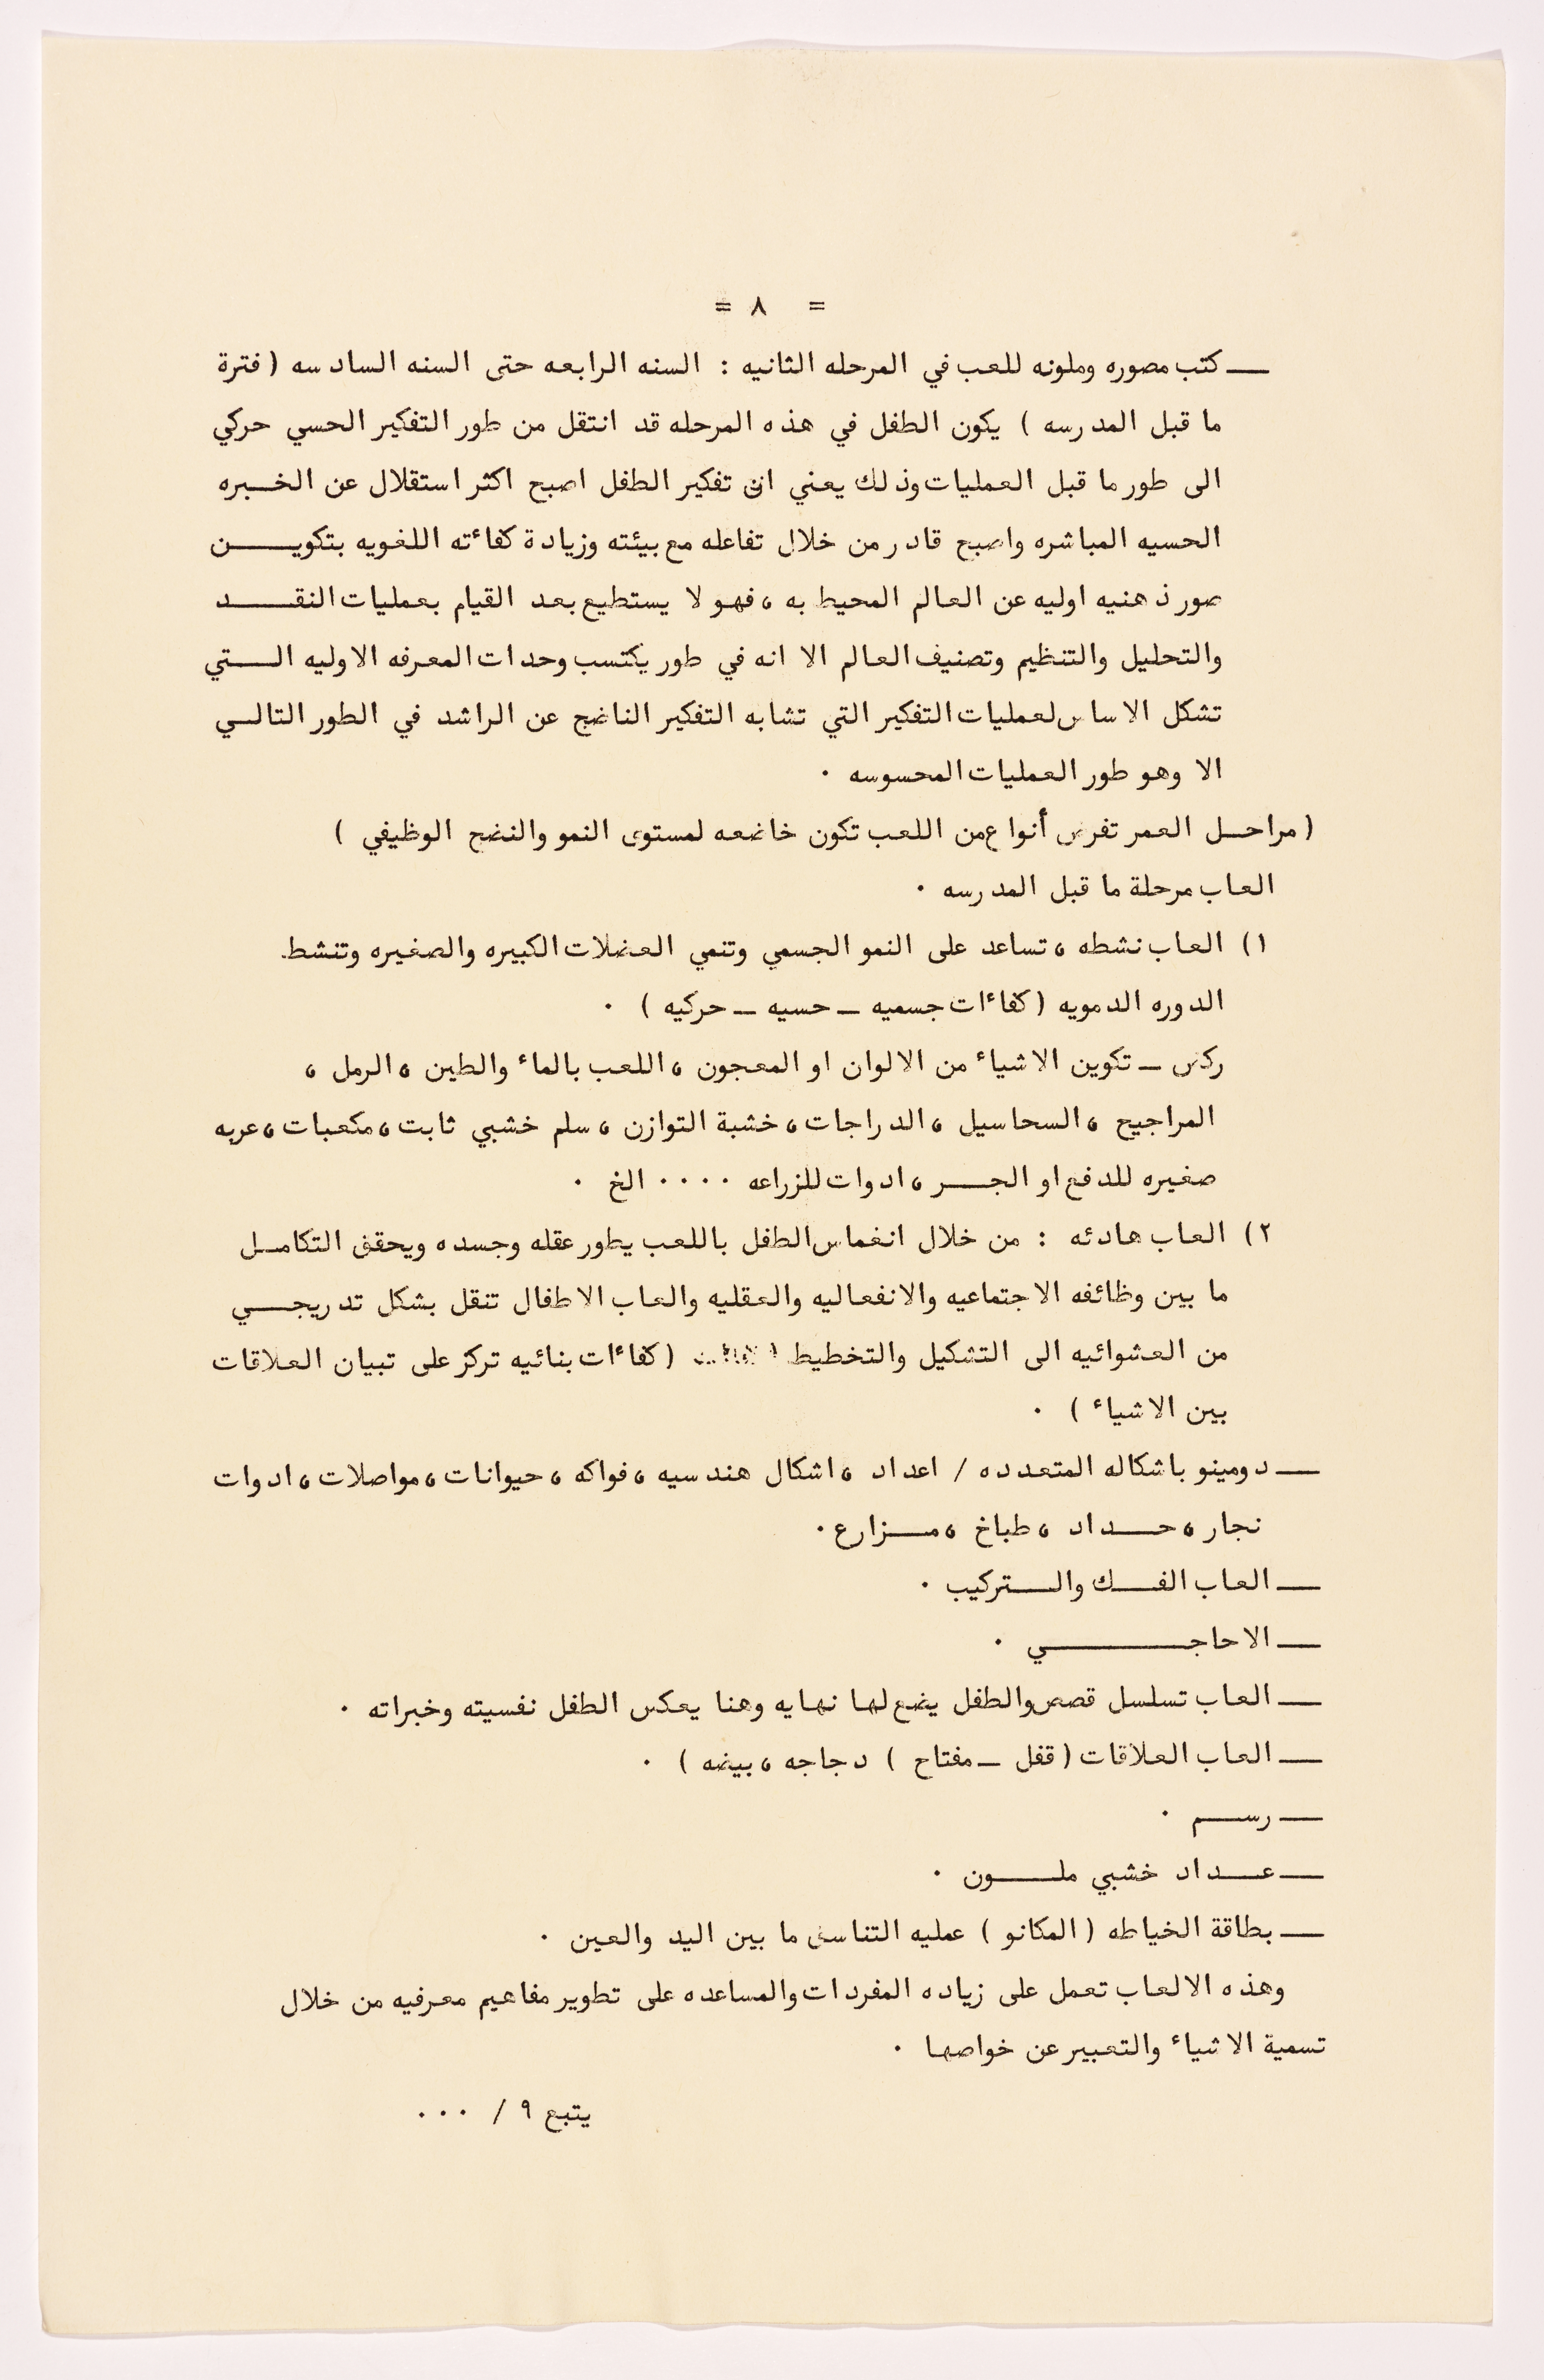 = ٨ =
ــ كتب مصوره وملونه للعب في المرحله الثانيه : السنه الرابعه حتى السنه السادسه ( فترة
ما قبل المدرسه ) يكون الطفل في هذه المرحله قد انتقل من طور التفكير الحسي حركي
الى طور ما قبل العمليات وذلك يعني ان تفكير الطفل اصبح اكثر استقلال عن الخبره
الحسيه المباشره واصبح قادر من خلال تفاعله مع بيئته وزيادة كفاءته اللغويه بتكوين
صور ذهنيه اوليه عن العالم المحيط به ، فهو لا يستطيع بعد القيام بعمليات النقد
والتحليل والتنظيم وتصنيف العالم الا انه في طور يكتسب وحدات المعرفه الاوليه التي
تشكل الاساس لعمليات التفكير التي تشابه التفكير الناضج عن الراشد في الطور التالي
الا وهو طور العمليات المحسوسه ٠
( مراحل العمر تفرض أنواع من اللعب تكون خاضعه لمستوى النمو والنضج الوظيفي )
العاب مرحلة ما قبل المدرسه ٠
١) العاب نشطه ، تساعد على النمو الجسمي وتنمي العضلات الكبيره والصغيره وتنشط
الدوره الدمويه ( كفاءات جسميه ــ حسيه ــ حركيه ) ٠
ركض ــ تكوين الاشياء من الالوان او المعجون ، اللعب بالماء والطين ، الرمل ،
المراجيح ، السحاسيل ، الدراجات ، خشبة التوازن ، سلم خشبي ثابت ، مكعبات ، عربه
صغيره للدفع او الجر ، ادوات للزراعه ٠٠٠٠ الخ ٠
٢) العاب هادئه : من خلال انغماس الطفل باللعب يطور عقله وجسده ويحقق التكامل
ما بين وظائفه الاجتماعيه والانفعاليه والعقليه والعاب الاطفال تنقل بشكل تدريجي
من العشوائيه الى التشكيل والتخطيط ( كفاءات بنائيه تركز على تبيان العلاقات
بين الاشياء ) ٠
ــ دومينو باشكاله المتعدده / اعداد ، اشكال هندسيه ، فواكه ، حيوانات ، مواصلات ، ادوات
نجار ، حداد ، طباخ ، مزارع ٠
ــ العاب الفك والتركيب ٠
ــ الاحاجي ٠
ــ العاب تسلسل قصص والطفل يضع لها نهايه وهنا يعكس الطفل نفسيته وخبراته ٠
ــ العاب العلاقات ( قفل ــ مفتاح ) دجاجه ، بيضه ) ٠
ــ رسم ٠
ــ عداد خشبي ملون ٠
ــ بطاقة الخياطه ( المكانو ) عمليه التناسق ما بين اليد والعين ٠
وهذه الالعاب تعمل على زياده المفردات والمساعده على تطوير مفاهيم معرفيه من خلال
تسمية الاشياء والتعبير عن خواصها ٠
يتبع ٩ / ٠٠٠